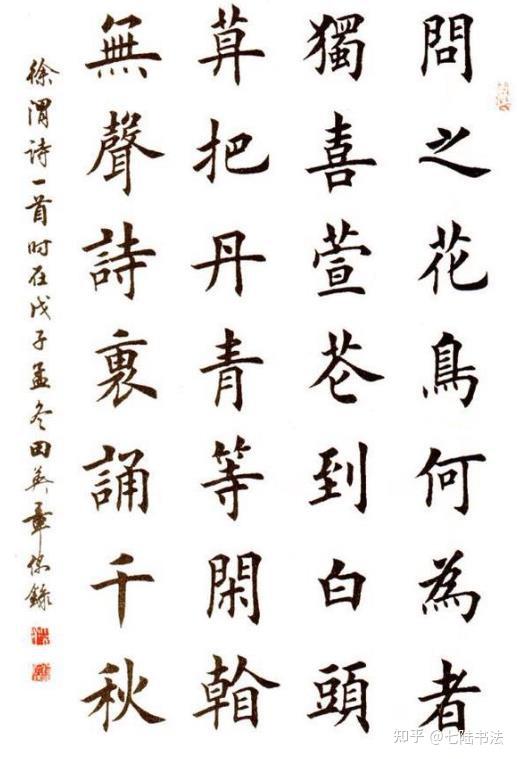 問之花鳥何為者
獨喜萱花到白頭
莫把丹青等閑看
無聲詩裏誦千秋
徐渭詩一首时在戊子孟冬田英章錄
知乎 @七陆书法